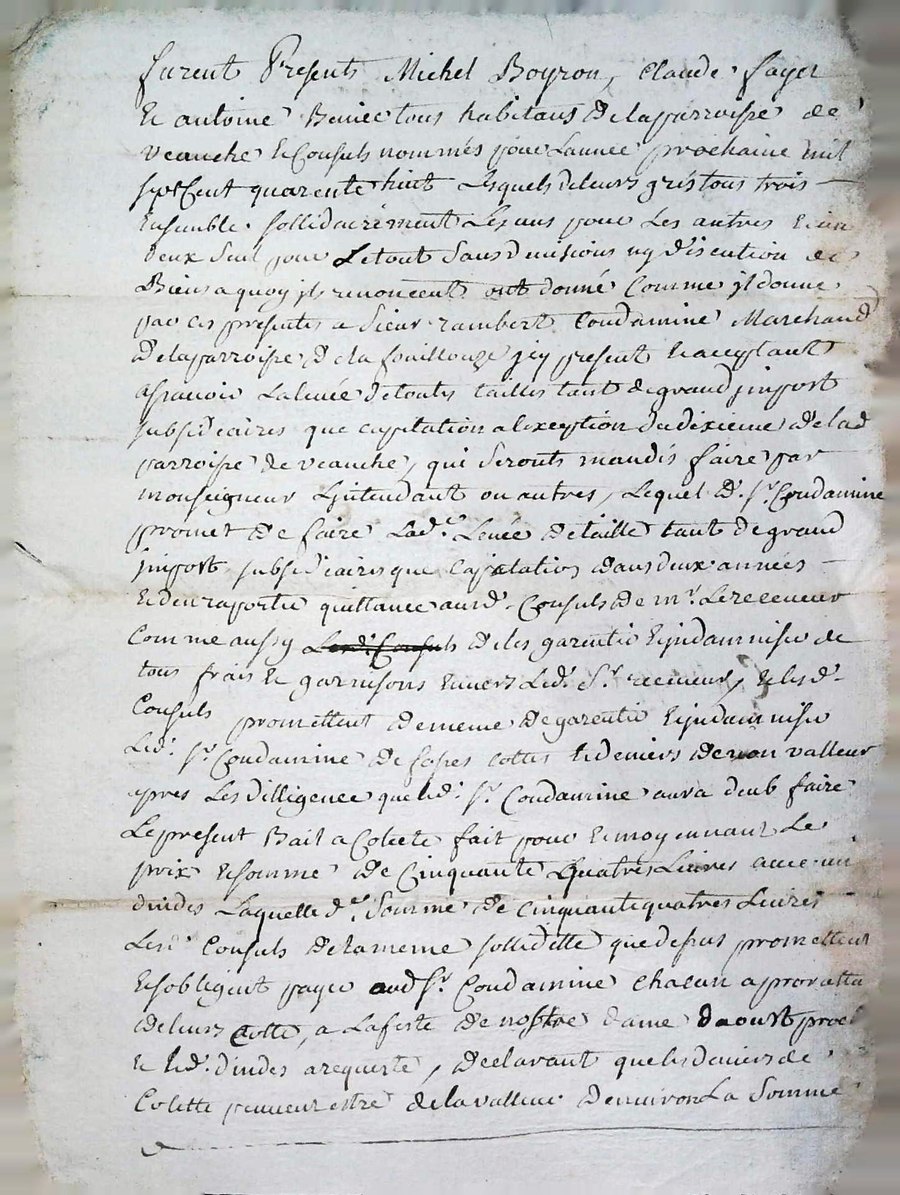 furent Presents Michel Boyron, Claude fayet
Et antoine tous habitans de la parroisse de
veauche et Consuls nommés pour Lannée prochaine mil
sept Cent quarente huit Lesquels de leurs grés tous trois
Ensemble sollidairement Les uns pour Les autres Et un
deux seul pour Le tout sans divisions ny discution de
Biens a quoy jls renoncent ont donné Comme jl donne
par ces presentes a Sieur rambert Coudamine Marchand
de la parroisse de la fouillouze jcy present Et acceptant
assavoir La levée de toutes tailles tant de grand jmpost
subsidiaires que capitation a lexception du dixieme de lad
parroisse de veauche, qui seronts mandés faire par
monseigneur Ljntendant ou autres, Lequel d. sr. Coudamine
promet de faire Lad.e Levée de taille tant de grand
jmpost subsidiaires que Capitation dans deux années
Et den raporter quittance aux d. Consuls de mr. Le receveur
Comme aussy Lesd. Consuls de les garentir Et jndamniser de
tous frais Et garnisons Envers Led. Sr. receveur, Et les d.
Consuls promettent de meme de garentir Et jndamniser
Led. sr. Coudamine de fosses Cottes Et deniers de non valleur
apres Les dilligence que led. sr. Coudamine aura deub faire
Le present Bail a Colette fait pour Et moyennant Le
prix Et somme de Cinquante Quatres Livres avec un
dindes Laquelle d. Somme de cinquante quatres Livres
Les d. Consuls de la meme sollidette que dessus promettent
Et sobligent payer aud sr. Coudamine Chacun a pro ratta
de leurs Cotte, a La feste de nostre dame daoust proch
Et led. dindes a requeste, declarant que les deniers de
Colette peuvent estre de la valleur denviron La Somme